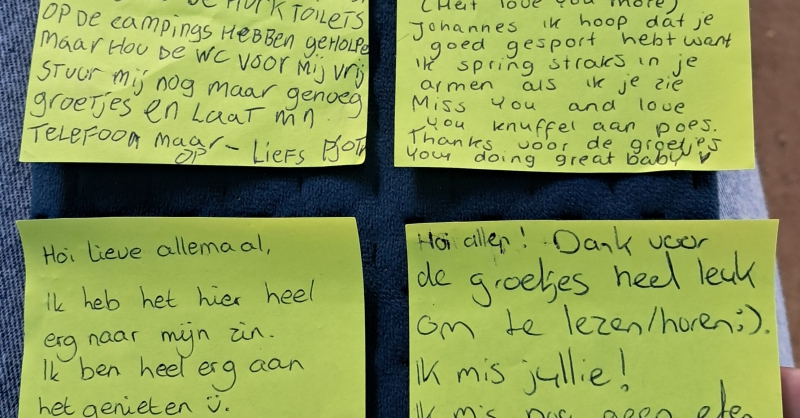 HURK TOILETS
OP DE CAMPINGS HEBBEN GEHOLPE
MAAR HOU DE WC VOOR MIJ VRIJ
STUUR mij nog maar genoeg
groetjes en LAAT mn
TELEFOON maar OP - LIEFS
(Heit love you more)
Johannes ik hoop dat je
goed gesport hebt want
ik spring straks in je
armen als ik je zie
Miss you and love
you knuffel aan poes.
Thanks voor de groetjes
Your doing great baby
Hoi lieve allemaal,
Ik heb het hier heel
erg naar mijn zin.
Ik ben heel erg aan
het genieten ü.
Hoi allen! Dank voor
de groetjes heel leuk
om te lezen/horen;).
IK mis jullie!
IK mis nog geen eten